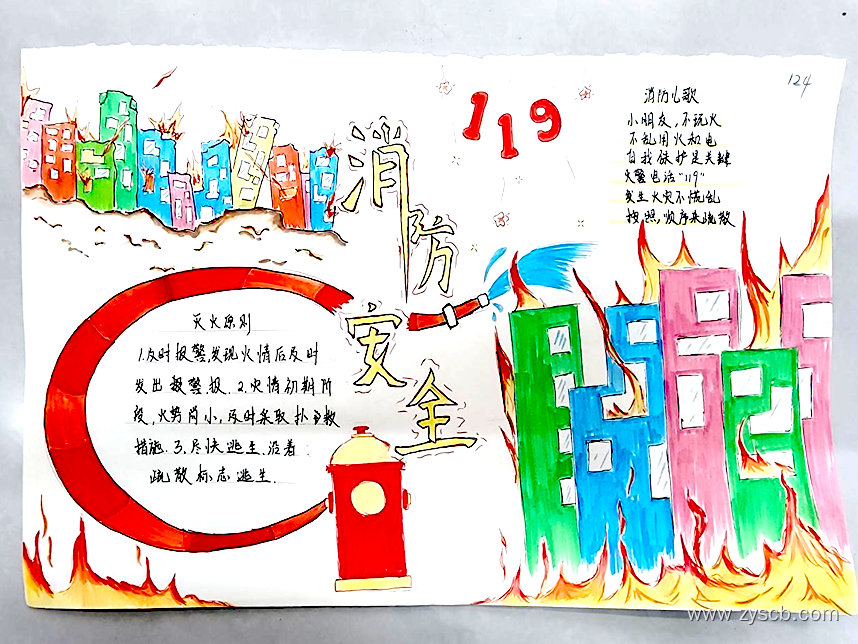 124
119
消防安全
消防儿歌
小朋友,不玩火
不乱用火和电
自我保护是关键
火警电话"119"
发生火灾不慌乱
按照顺序来疏散
灭火原则
1.及时报警,发现火情后及时
发出报警报.2.火情初期阶
段,火势尚小,及时采取扑救
措施.3.尽快逃生.沿着
疏散标志逃生.
www.zyscb.com